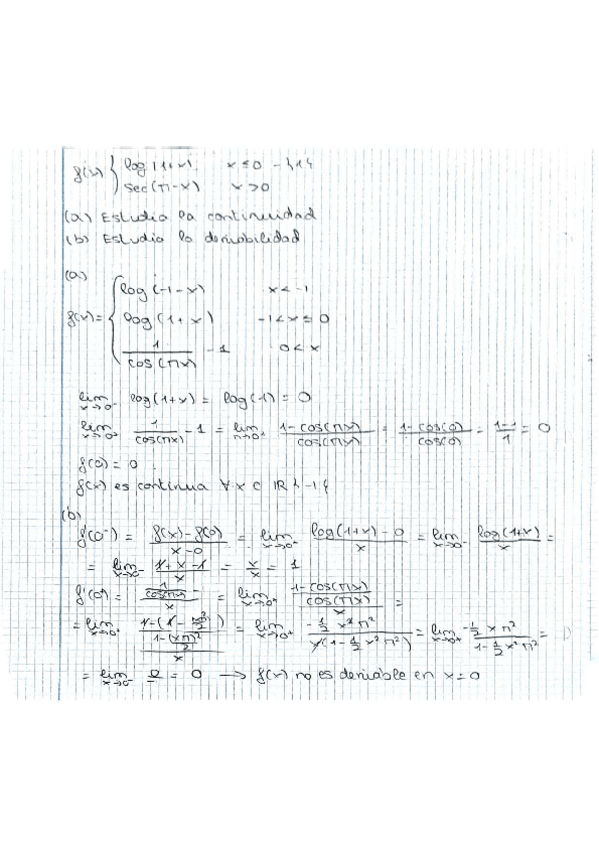 f(x) { log |1+x| x ≤ 0 - {1}
sec(π-x) x > 0
(a) Estudia la continuidad
(b) Estudia la derivabilidad
(a)
f(x) = { log(-1-x) x < -1
log(1+x) -1 < x ≤ 0
1/cos(πx) - 1 0 < x
lim x→0⁻ log(1+x) = log(1) = 0
lim x→0⁺ 1/cos(πx) - 1 = lim x→0⁺ (1-cos(πx))/cos(πx) = (1-cos(0))/cos(0) = (1-1)/1 = 0
f(0) = 0
f(x) es continua ∀x ∈ ℝ \ {-1}
(b)
f(0⁻) = (f(x)-f(0))/(x-0) = lim x→0⁻ (log(1+x)-0)/x = lim x→0⁻ log(1+x)/x =
= lim x→0⁻ (1+x-1)/x = x/x = 1
f'(0⁺) = (1/cos(πx) - 1)/x = lim x→0⁺ ((1-cos(πx))/cos(πx))/x =
= lim x→0⁺
= lim x→0⁺ = 0 → f(x) no es derivable en x=0